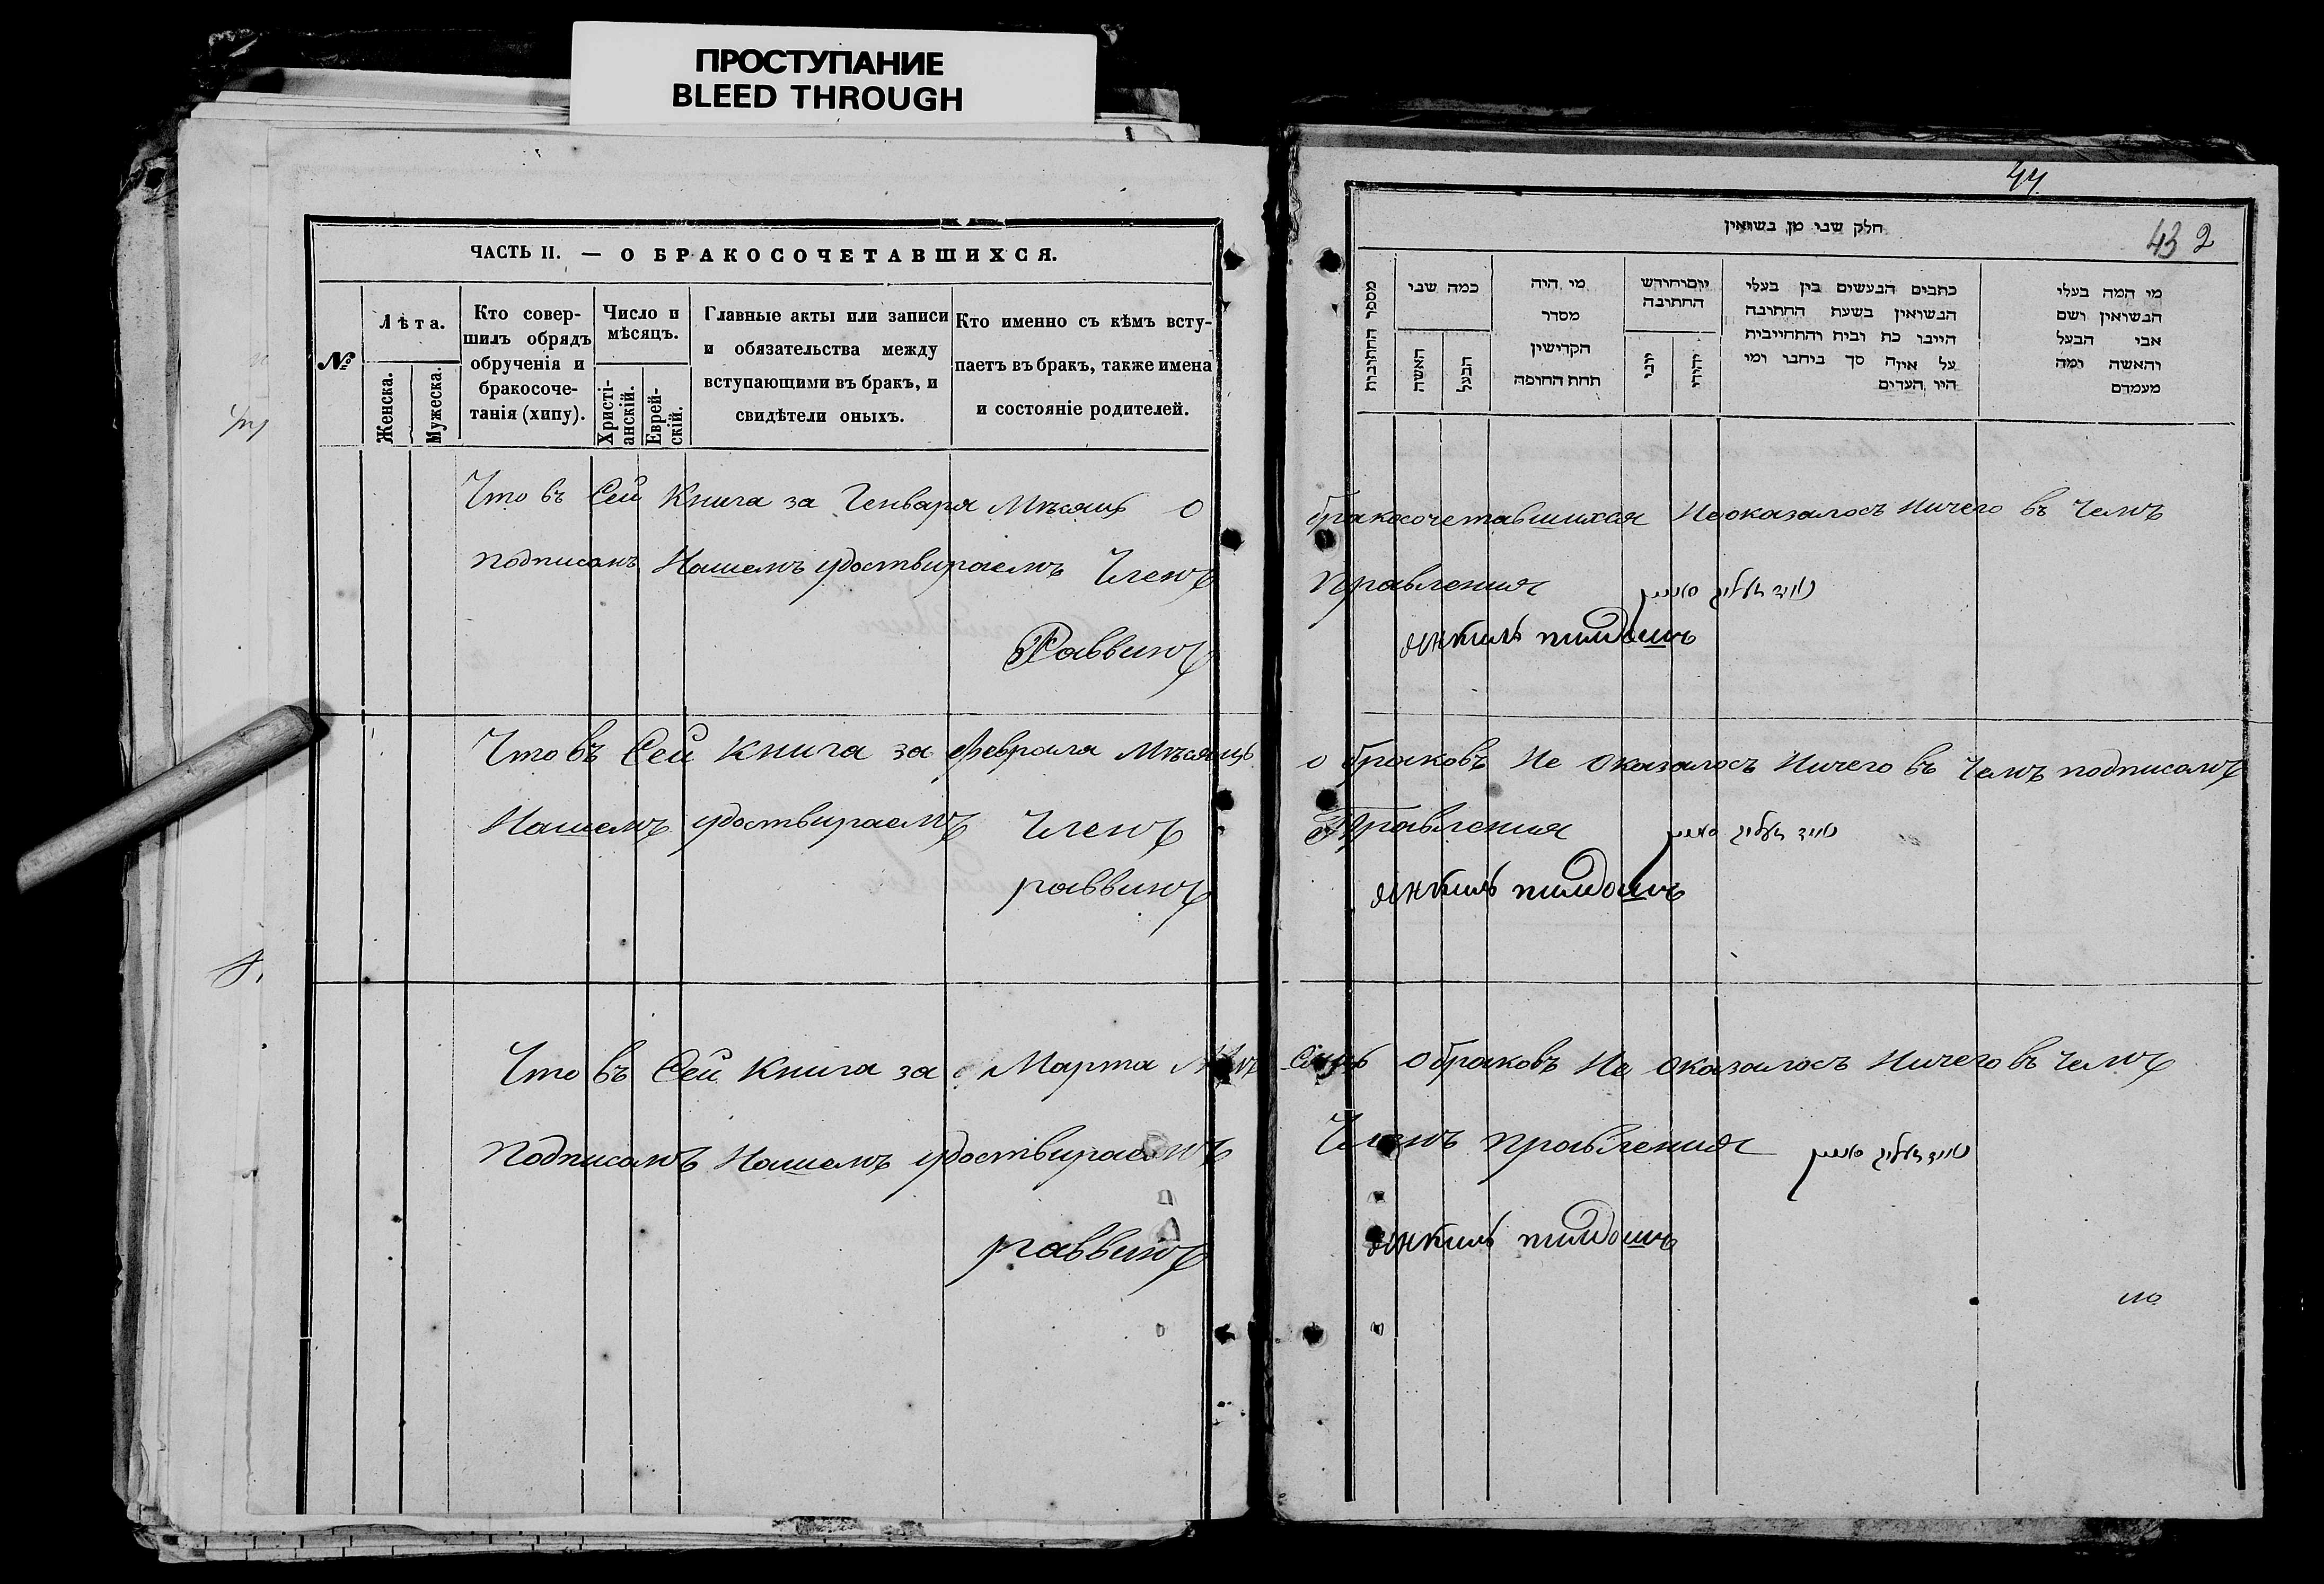 ПРОСТУПАНИЕ
BLEED THROUGH
ЧАСТЬ II. — О БРАКОСОЧЕТАВШИХСЯ.
№
Лѣта.
Женска.
Мужеска.
Кто совер-
шилъ обрядъ
обрученія и
бракосоче-
танія (хипу).
Число и
мѣсяцъ.
Христі-
анскій.
Еврей-
скій.
Главные акты или записи
и обязательства между
вступающими въ бракъ, и
свидѣтели оныхъ.
Кто именно съ кѣмъ всту-
паетъ въ бракъ, также имена
и состояніе родителей.
Что въ Сей Книга за Генваря Мѣсяцъ о
подписомъ Нашемъ удоствираемъ Членъ
Раввинъ
Что въ Сей Книга за Февраля Мѣсяцъ
Нашемъ удоствираемъ Членъ
раввинъ
Что въ Сей Книга за Марта Мѣ
Подписомъ Нашемъ удоствираемъ
раввинъ
44
43 2
חלק שני מן נשואין
מספר החתונות
כמה שני
האשה
הבעל
מי היה
מסדר
הקדישין
תחת החופה
יום וחודש
החתונה
יוני
יהודי
כתבים הנעשים בין בעלי
הנשואין בשעת החתונה
היינו כת ובית והתחייבית
על איזה סך ביחבו ומי
היו העדים
מי המה בעלי
הנשואין ושם
אבי הבעל
והאשה ומה
מעמדם
бракосочетавшихся Не оказалось Ничего въ Чемъ
Правления
о браковъ Не оказалось Ничего въ Чемъ подписомъ
Правления
сяцъ о браковъ Не оказалось Ничего въ Чемъ
Членъ правления